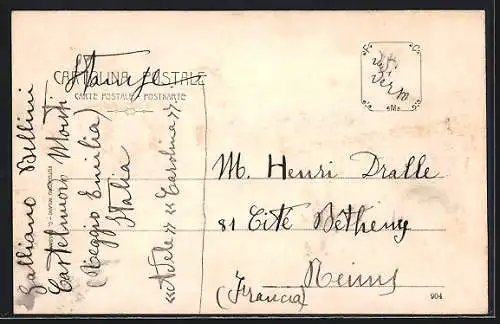 CARTOLINA POSTALE
CARTE POSTALE - POSTKARTE
F C
M
M. Henri Dralle
81 Cité Bétheny
Reims
(Francia)
904
Galliano Bellini
Castelnuovo Monti
(Reggio Emilia)
Italia
«Adele» «Carolina»